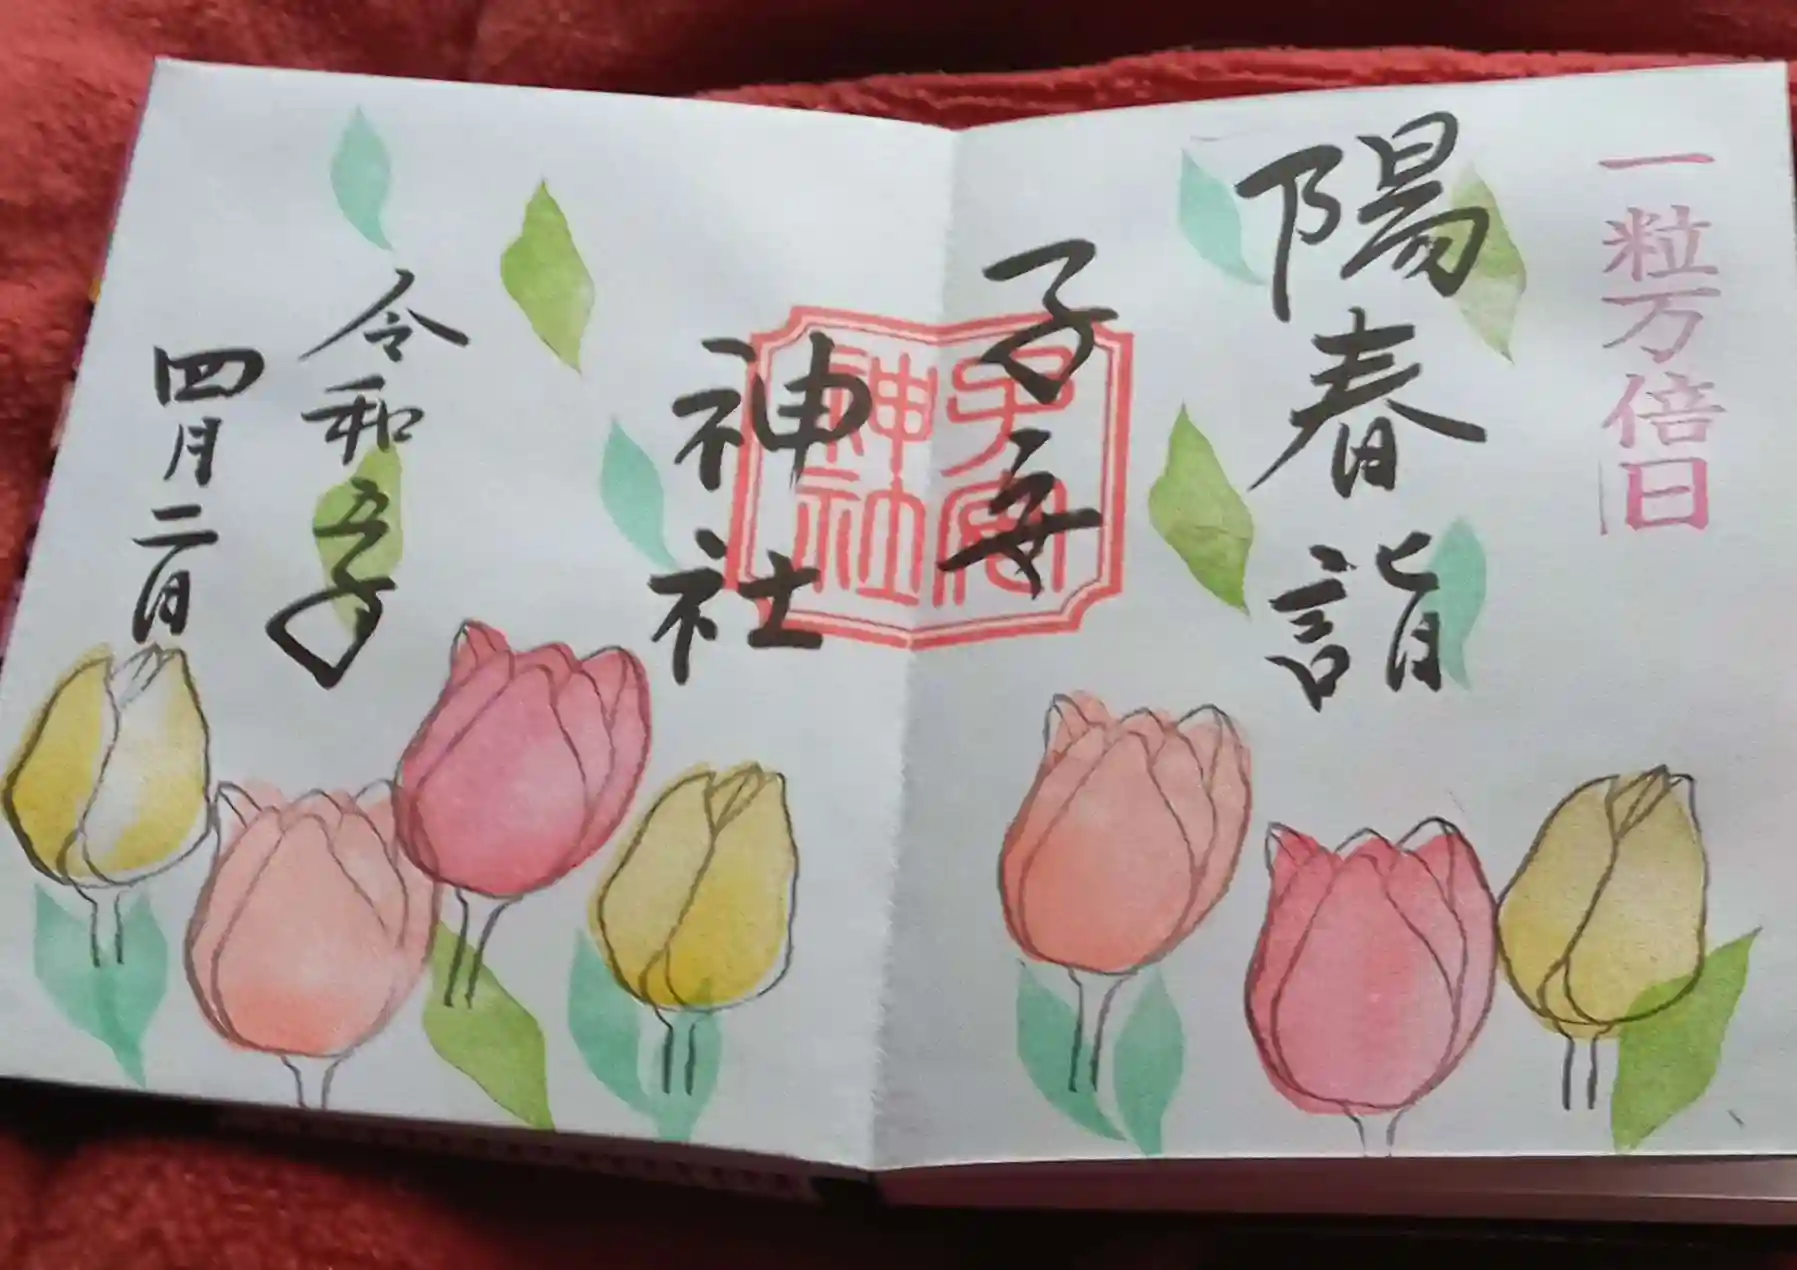 一粒万倍日
陽春詣
子安
神社
子安
神社
令和五年
四月二日